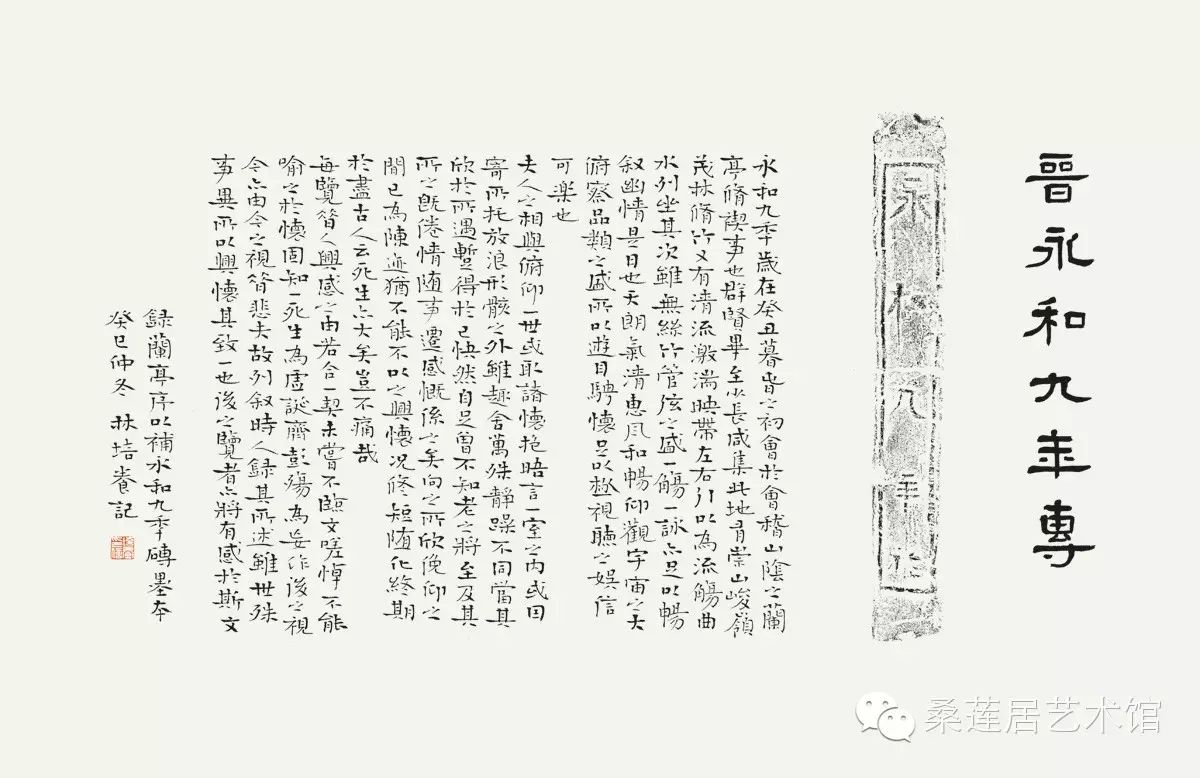 晉永和九年專
永和九年
永和九季歲在癸丑暮旾之初會於會稽山陰之蘭
亭脩禊事也群賢畢至少長咸集此地有崇山峻嶺
茂林脩竹又有清流激湍映帶左右引以為流觴曲
水列坐其次雖無絲竹管弦之盛一觴一詠亦足以暢
叙幽情是日也天朗氣清惠風和暢仰觀宇宙之大
俯察品類之盛所以遊目騁懷足以極視聽之娛信
可樂也
夫人之相與俯仰一世或取諸懷抱晤言一室之內或因
寄所托放浪形骸之外雖趣舍萬殊靜躁不同當其
欣於所遇暫得於己怏然自足曾不知老之將至及其
所之既倦情隨事遷感慨係之矣向之所欣俛仰之
間已為陳迹猶不能不以之興懷況修短隨化終期
於盡古人云死生亦大矣豈不痛哉
每覽昝人興感之由若合一契未嘗不臨文嗟悼不能
喻之於懷固知一死生為虛誕齊彭殤為妄作後之視
今亦由今之視昝悲夫故列叙時人錄其所述雖世殊
事異所以興懷其致一也後之覽者亦將有感於斯文
錄蘭亭序以補永和九季磚墨本
癸巳仲冬 林培養記
桑莲居艺术馆